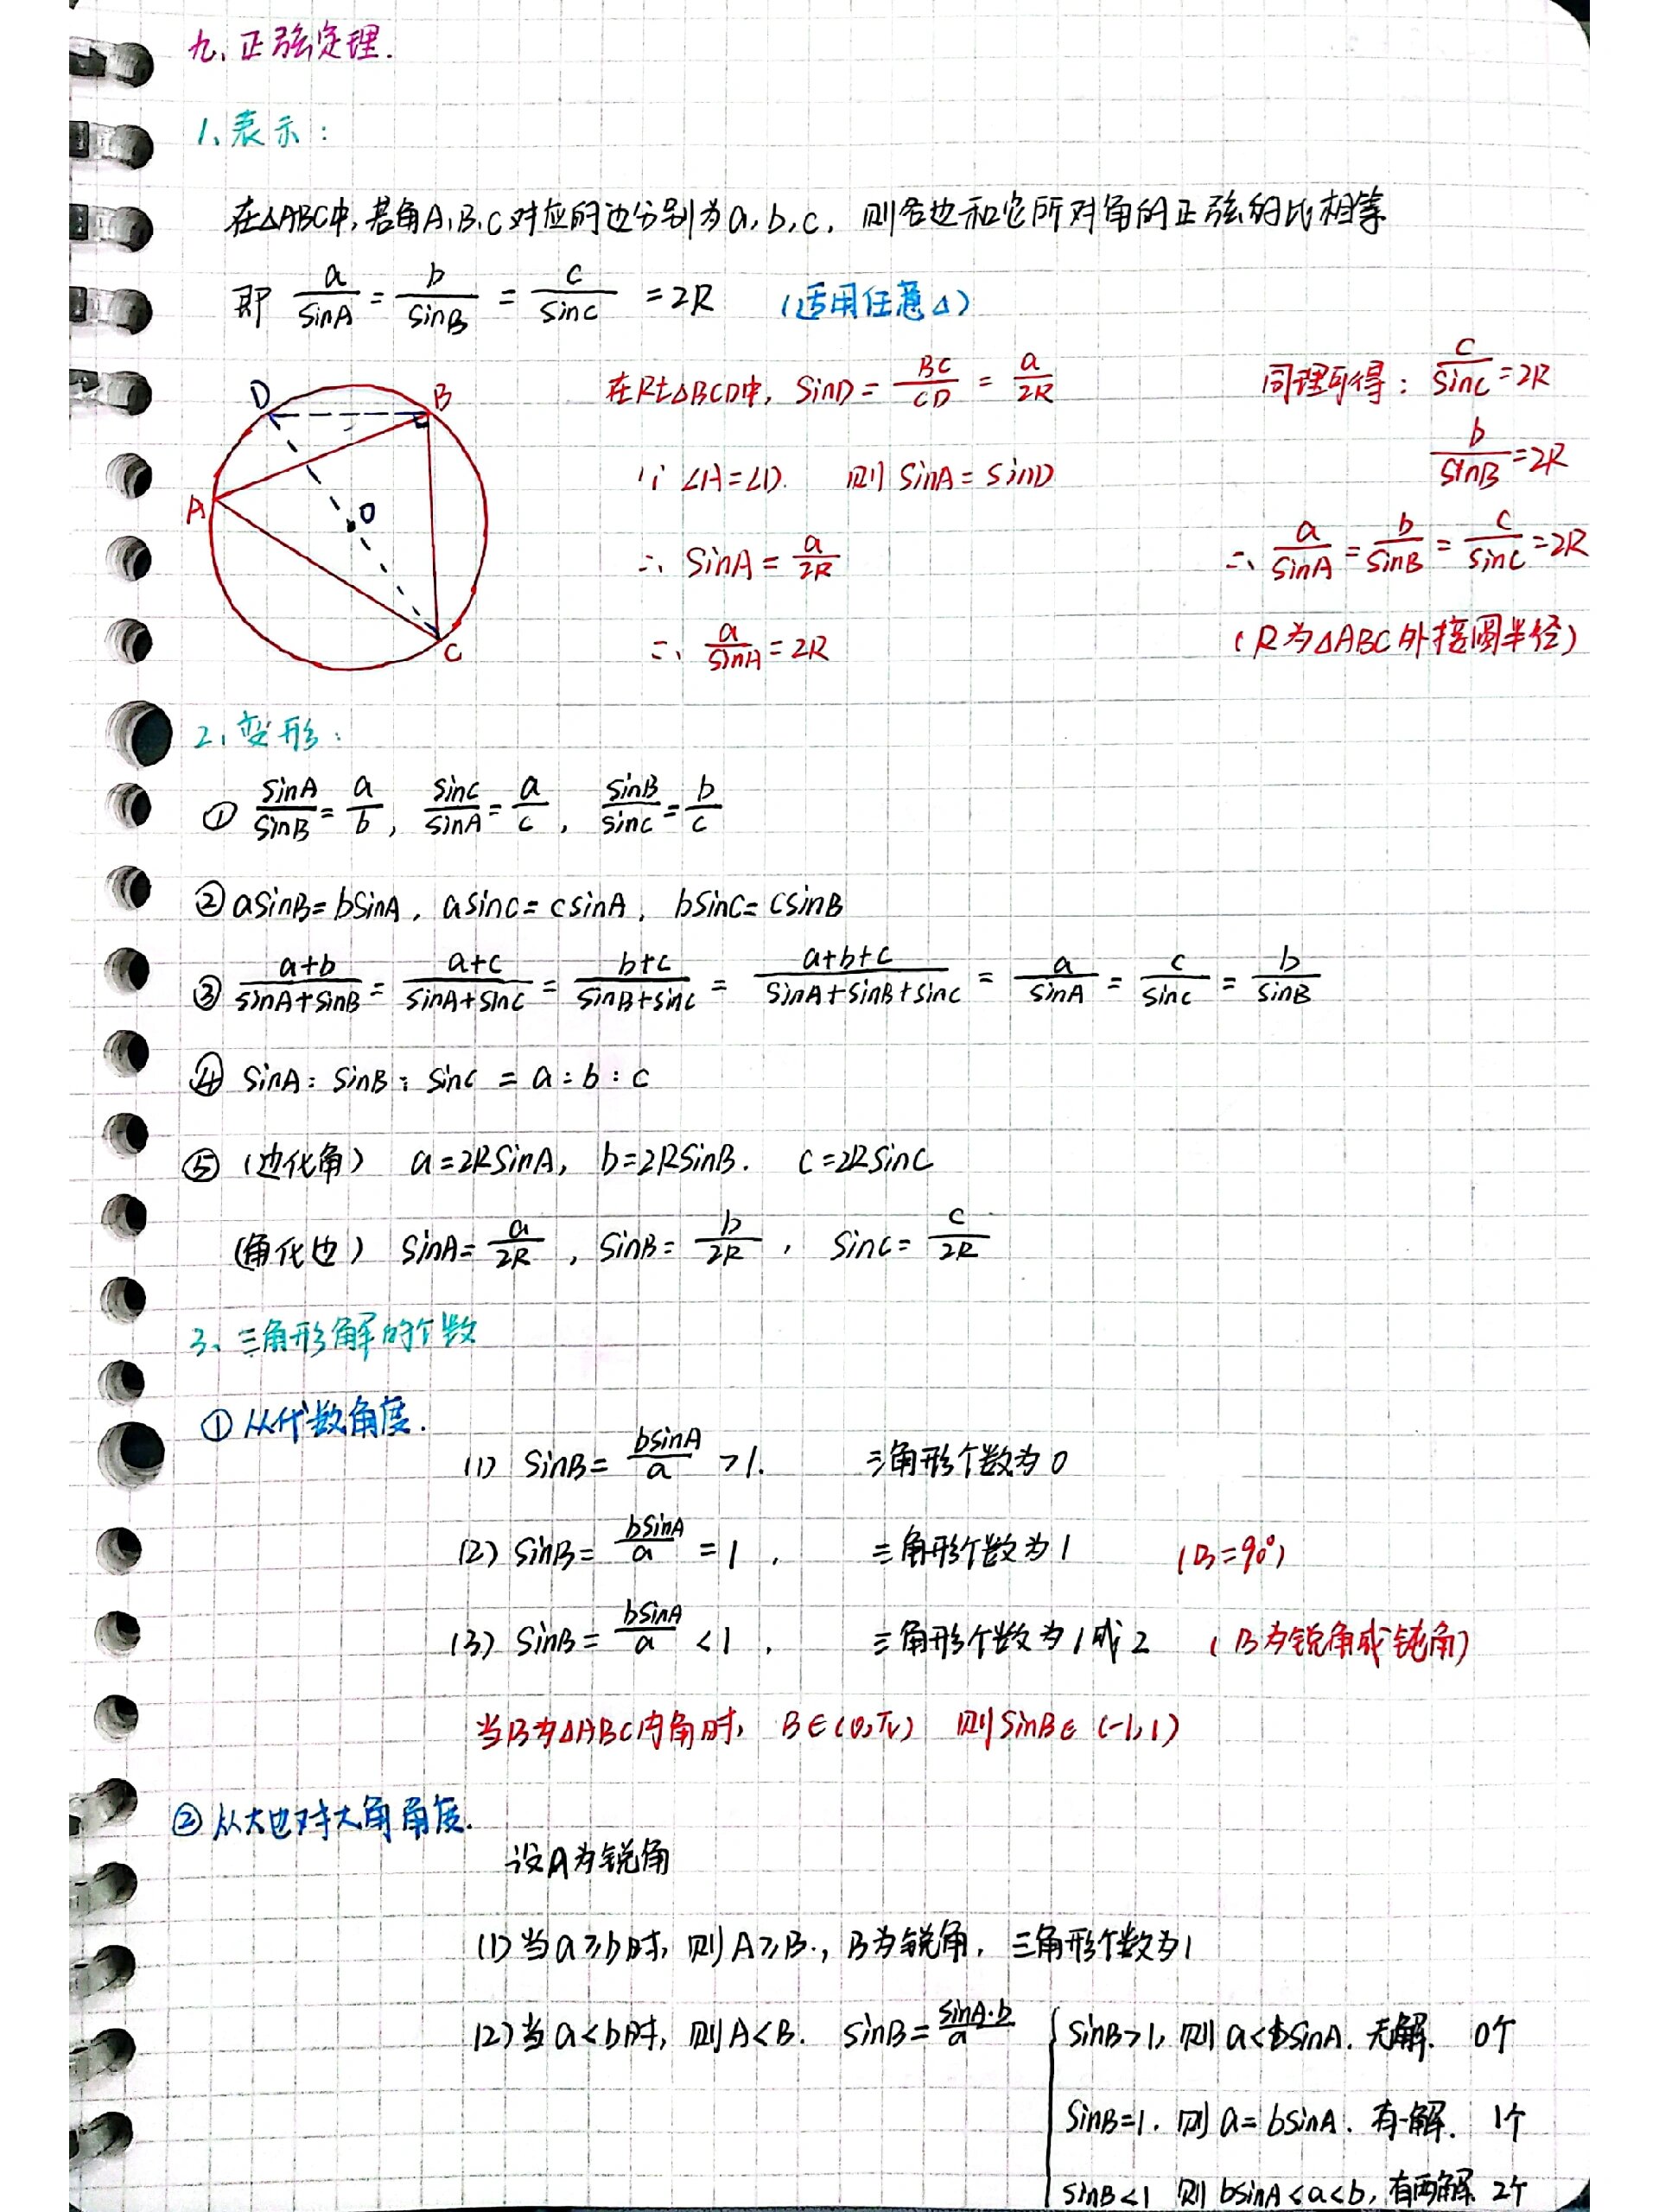 九、正弦定理.
1、表示：
在△ABC中,若角A,B,C对应的边分别为a,b,c, 则各边和它所对角的正弦的比相等
即 a/sinA = b/sinB = c/sinC = 2R (适用任意△)
D B A O C
在Rt△BCD中, sinD = BC/CD = a/2R
∵ ∠A=∠D. 则 sinA = sinD
∴ sinA = a/2R
∴ a/sinA = 2R
同理可得： c/sinC = 2R
b/sinB = 2R
∴ a/sinA = b/sinB = c/sinC = 2R
(R为△ABC外接圆半径)
2、变形：
① sinA/sinB = a/b, sinC/sinA = a/c, sinB/sinC = b/c
② asinB = bsinA, asinC = csinA, bsinC = csinB
③ a+b/sinA+sinB = a+c/sinA+sinC = b+c/sinB+sinC = a+b+c/sinA+sinB+sinC = a/sinA = c/sinC = b/sinB
④ sinA : sinB : sinC = a : b : c
⑤ (边化角) a=2RsinA, b=2RsinB. c=2RsinC
(角化边) sinA = a/2R, sinB = b/2R, sinC = c/2R
3、三角形解的个数
① 从代数角度.
(1) sinB = bsinA/a >1. 三角形个数为0
(2) sinB = bsinA/a = 1, 三角形个数为1 (B=90°)
(3) sinB = bsinA/a < 1, 三角形个数为1或2 (B为锐角或钝角)
当B为△ABC内角时, B∈(0,π) 则sinB∈(-1,1)
② 从大边对大角角度.
设A为锐角
(1)当a≥b时, 则A≥B., B为锐角, 三角形个数为1
(2)当a<b时, 则A<B. sinB = sinA·b/a
sinB>1, 则 a<bsinA. 无解. 0个
sinB=1. 则 a=bsinA. 有一解. 1个
sinB<1 则 bsinA<a<b, 有两解 2个